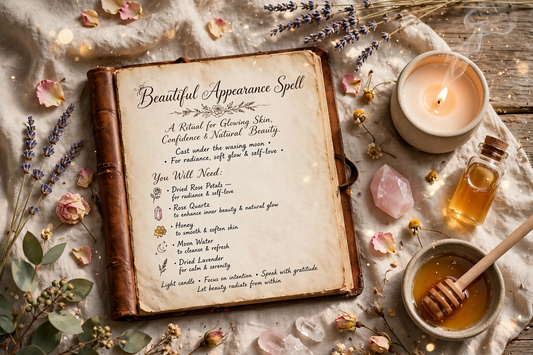 Beautiful Appearance Spell
A Ritual for Glowing Skin,
Confidence & Natural Beauty.
Cast under the waxing moon •
• For radiance, soft glow & self-love •
You Will Need:
• Dried Rose Petals —
for radiance & self-love
• Rose Quartz
to enhance inner beauty & natural glow
• Honey
to smooth & soften skin
• Moon Water
to cleanse & refresh
• Dried Lavender
for calm & serenity
Light candle • Focus on intention • Speak with gratitude
Let beauty radiate from within